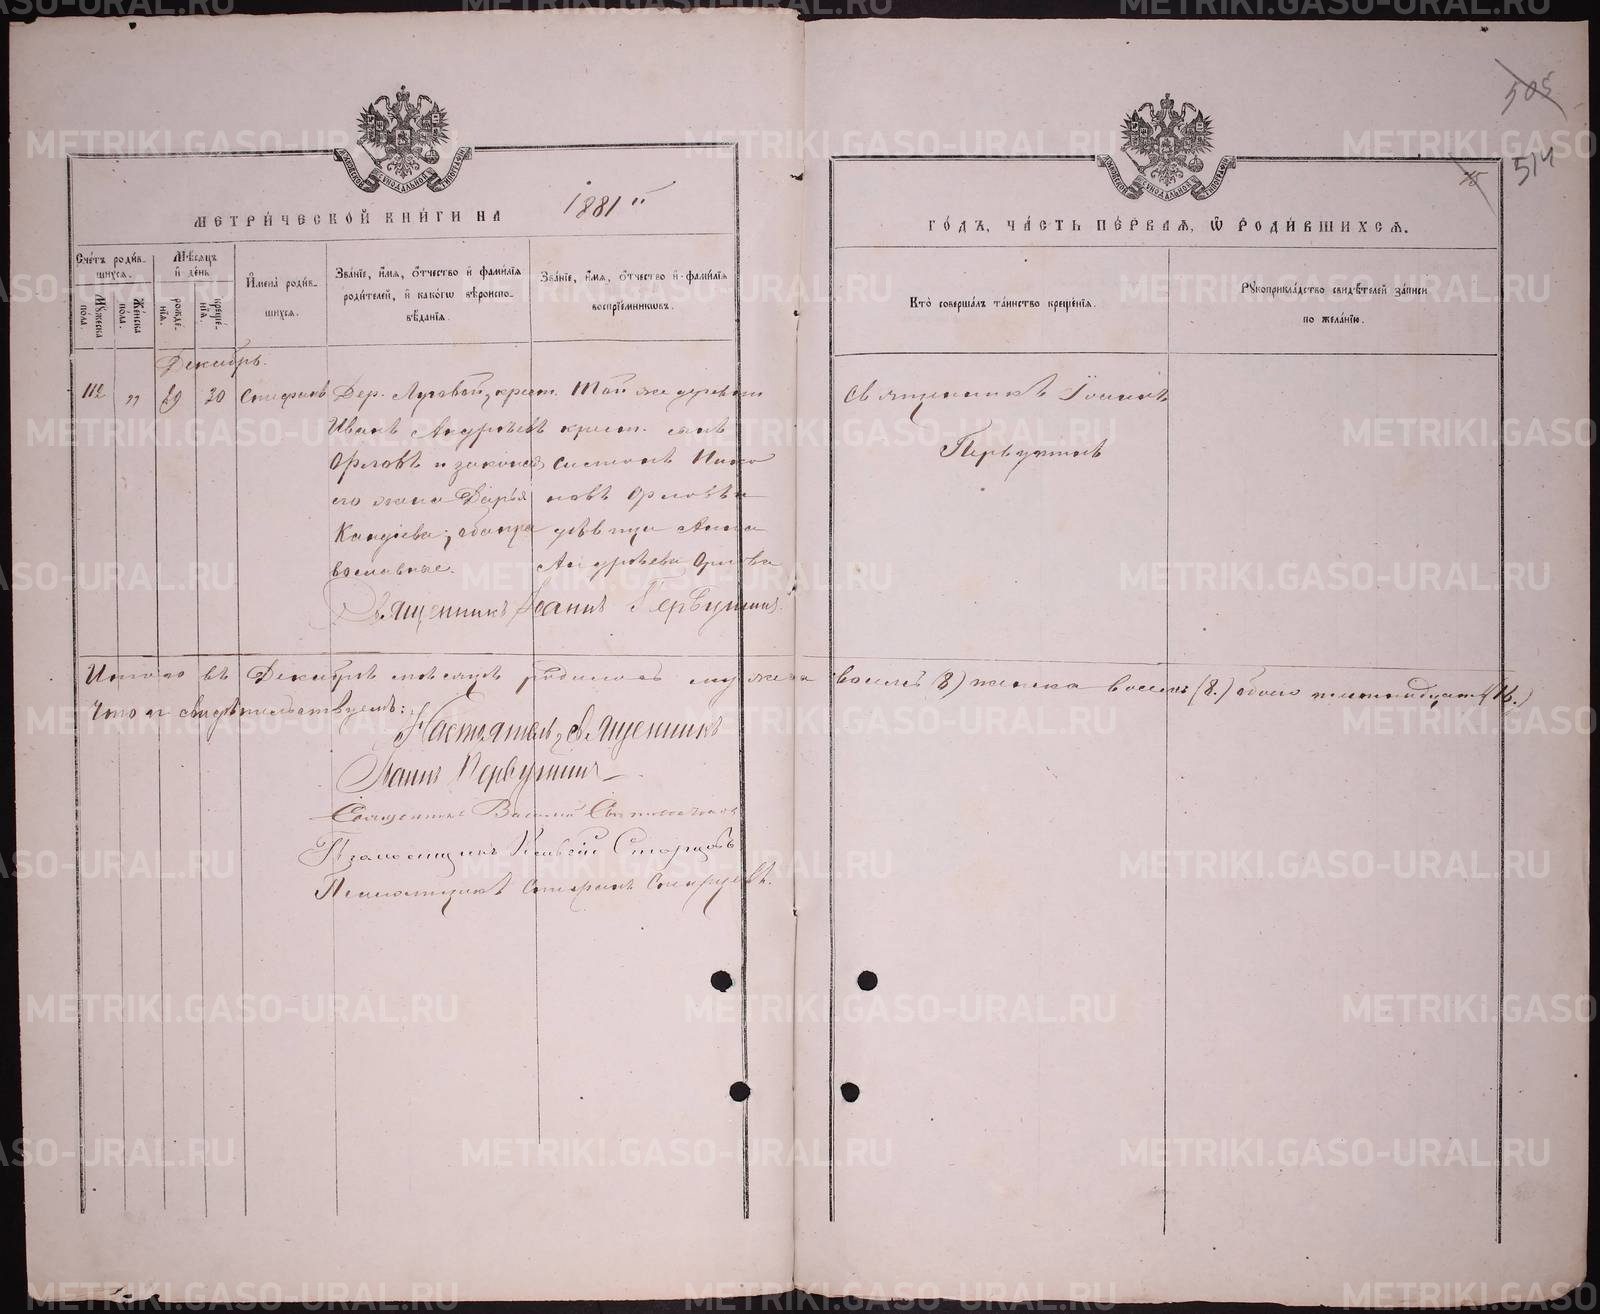 505
514
МЕТРИЧЕСКОЙ КНИГИ НА 1881й
ГОДЪ, ЧАСТЬ ПЕРВАЯ, Ѡ РОДИВШИХСЯ.
Счетъ родив-
шихся.
Мужеска пола.
Женска пола.
Мѣсяцъ и день
рожде-
нія.
креще-
нія.
Имена родив-
шихся.
Званіе, имя, отчество и фамилія
родителей, и какогѡ вѣроиспо-
вѣданія.
Званіе, имя, отчество и фамилія
воспріемниковъ.
Кто совершалъ таинство крещенія.
Рукоприкладство свидѣтелей записи
по желанію.
Декабрь.
112 „ 29 30 Стефанъ
Дер. Луговой, крест.
Иванъ Андреевъ
Орловъ и законная
его жена Дарья
оба пра
вославные.
Той же деревни
крест. сынъ
Орловъ и
дѣвица Анна
Андреева Орлова
Священникъ Іоаннъ
Первушинъ
Священникъ Іоаннъ Первушинъ.
Итого въ Декабрѣ мѣсяцѣ родилось мужеска восемь (8) женска восемь (8.) обоего шестнадцать (16.)
Что и свидѣтельствуемъ:
Настоятель, Священникъ
Іоаннъ Первушинъ
Священникъ Василій
Псаломщикъ Старцовъ
Псаломщикъ Стефанъ Старцевъ.
METRIKI.GASO-URAL.RU